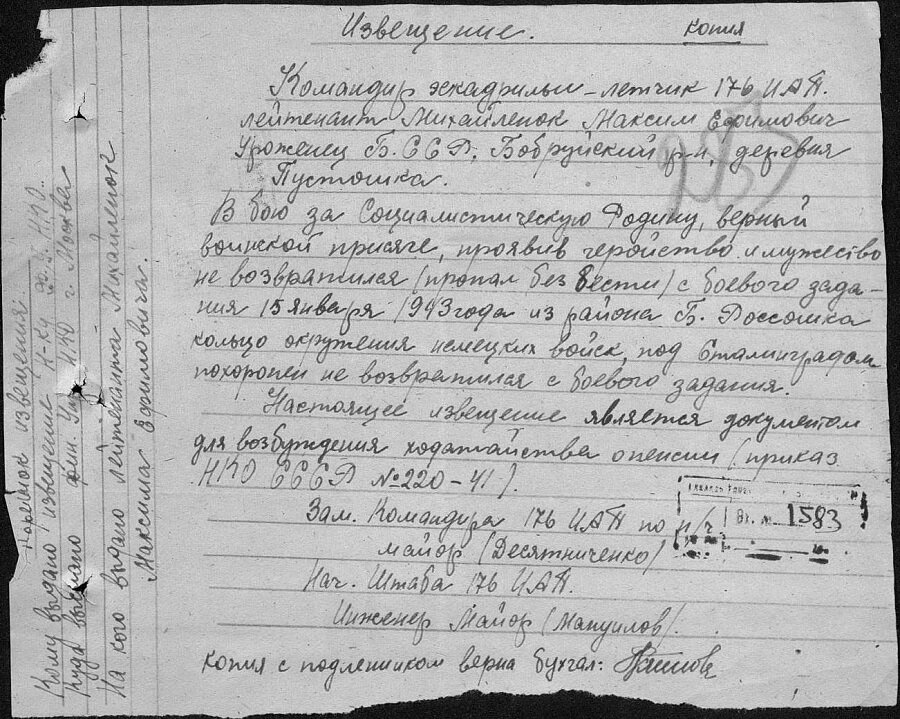 Извещение.
копия
Командир эскадрильи-летчик 176 ИАП.
лейтенант Михайленок Максим Ефимович
Уроженец Б.ССР, Бобруйский р-н, деревня
Пустошка.
В бою за Социалистическую Родину, верный
воинской присяге, проявив геройство и мужество
не возвратился (пропал без вести) с боевого зада-
ния 15 января 1943 года из района Б. Россошка
кольцо окружения немецких войск, под Сталинградом
похоронен не возвратился с боевого задания.
Настоящее извещение является документом
для возбуждения ходатайства о пенсии (приказ
НКО СССР №220-41).
Зам. Командира 176 ИАП по п/ч
майор (Десятниченко)
Нач. Штаба 176 ИАП.
Инженер Майор (Мануилов).
копия с подленником верна бухгал:
Вх. № 1583
Корешок извещения
Кому выдано извещение Н-ку НКО
куда выдано фин. НКО г. Москва
На кого выдано лейтенанта Михайленок
Максима Ефимовича.